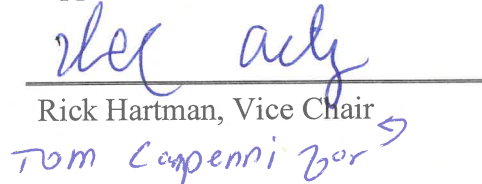 Rick Hartman, Vice Chair
Tom Campenni for